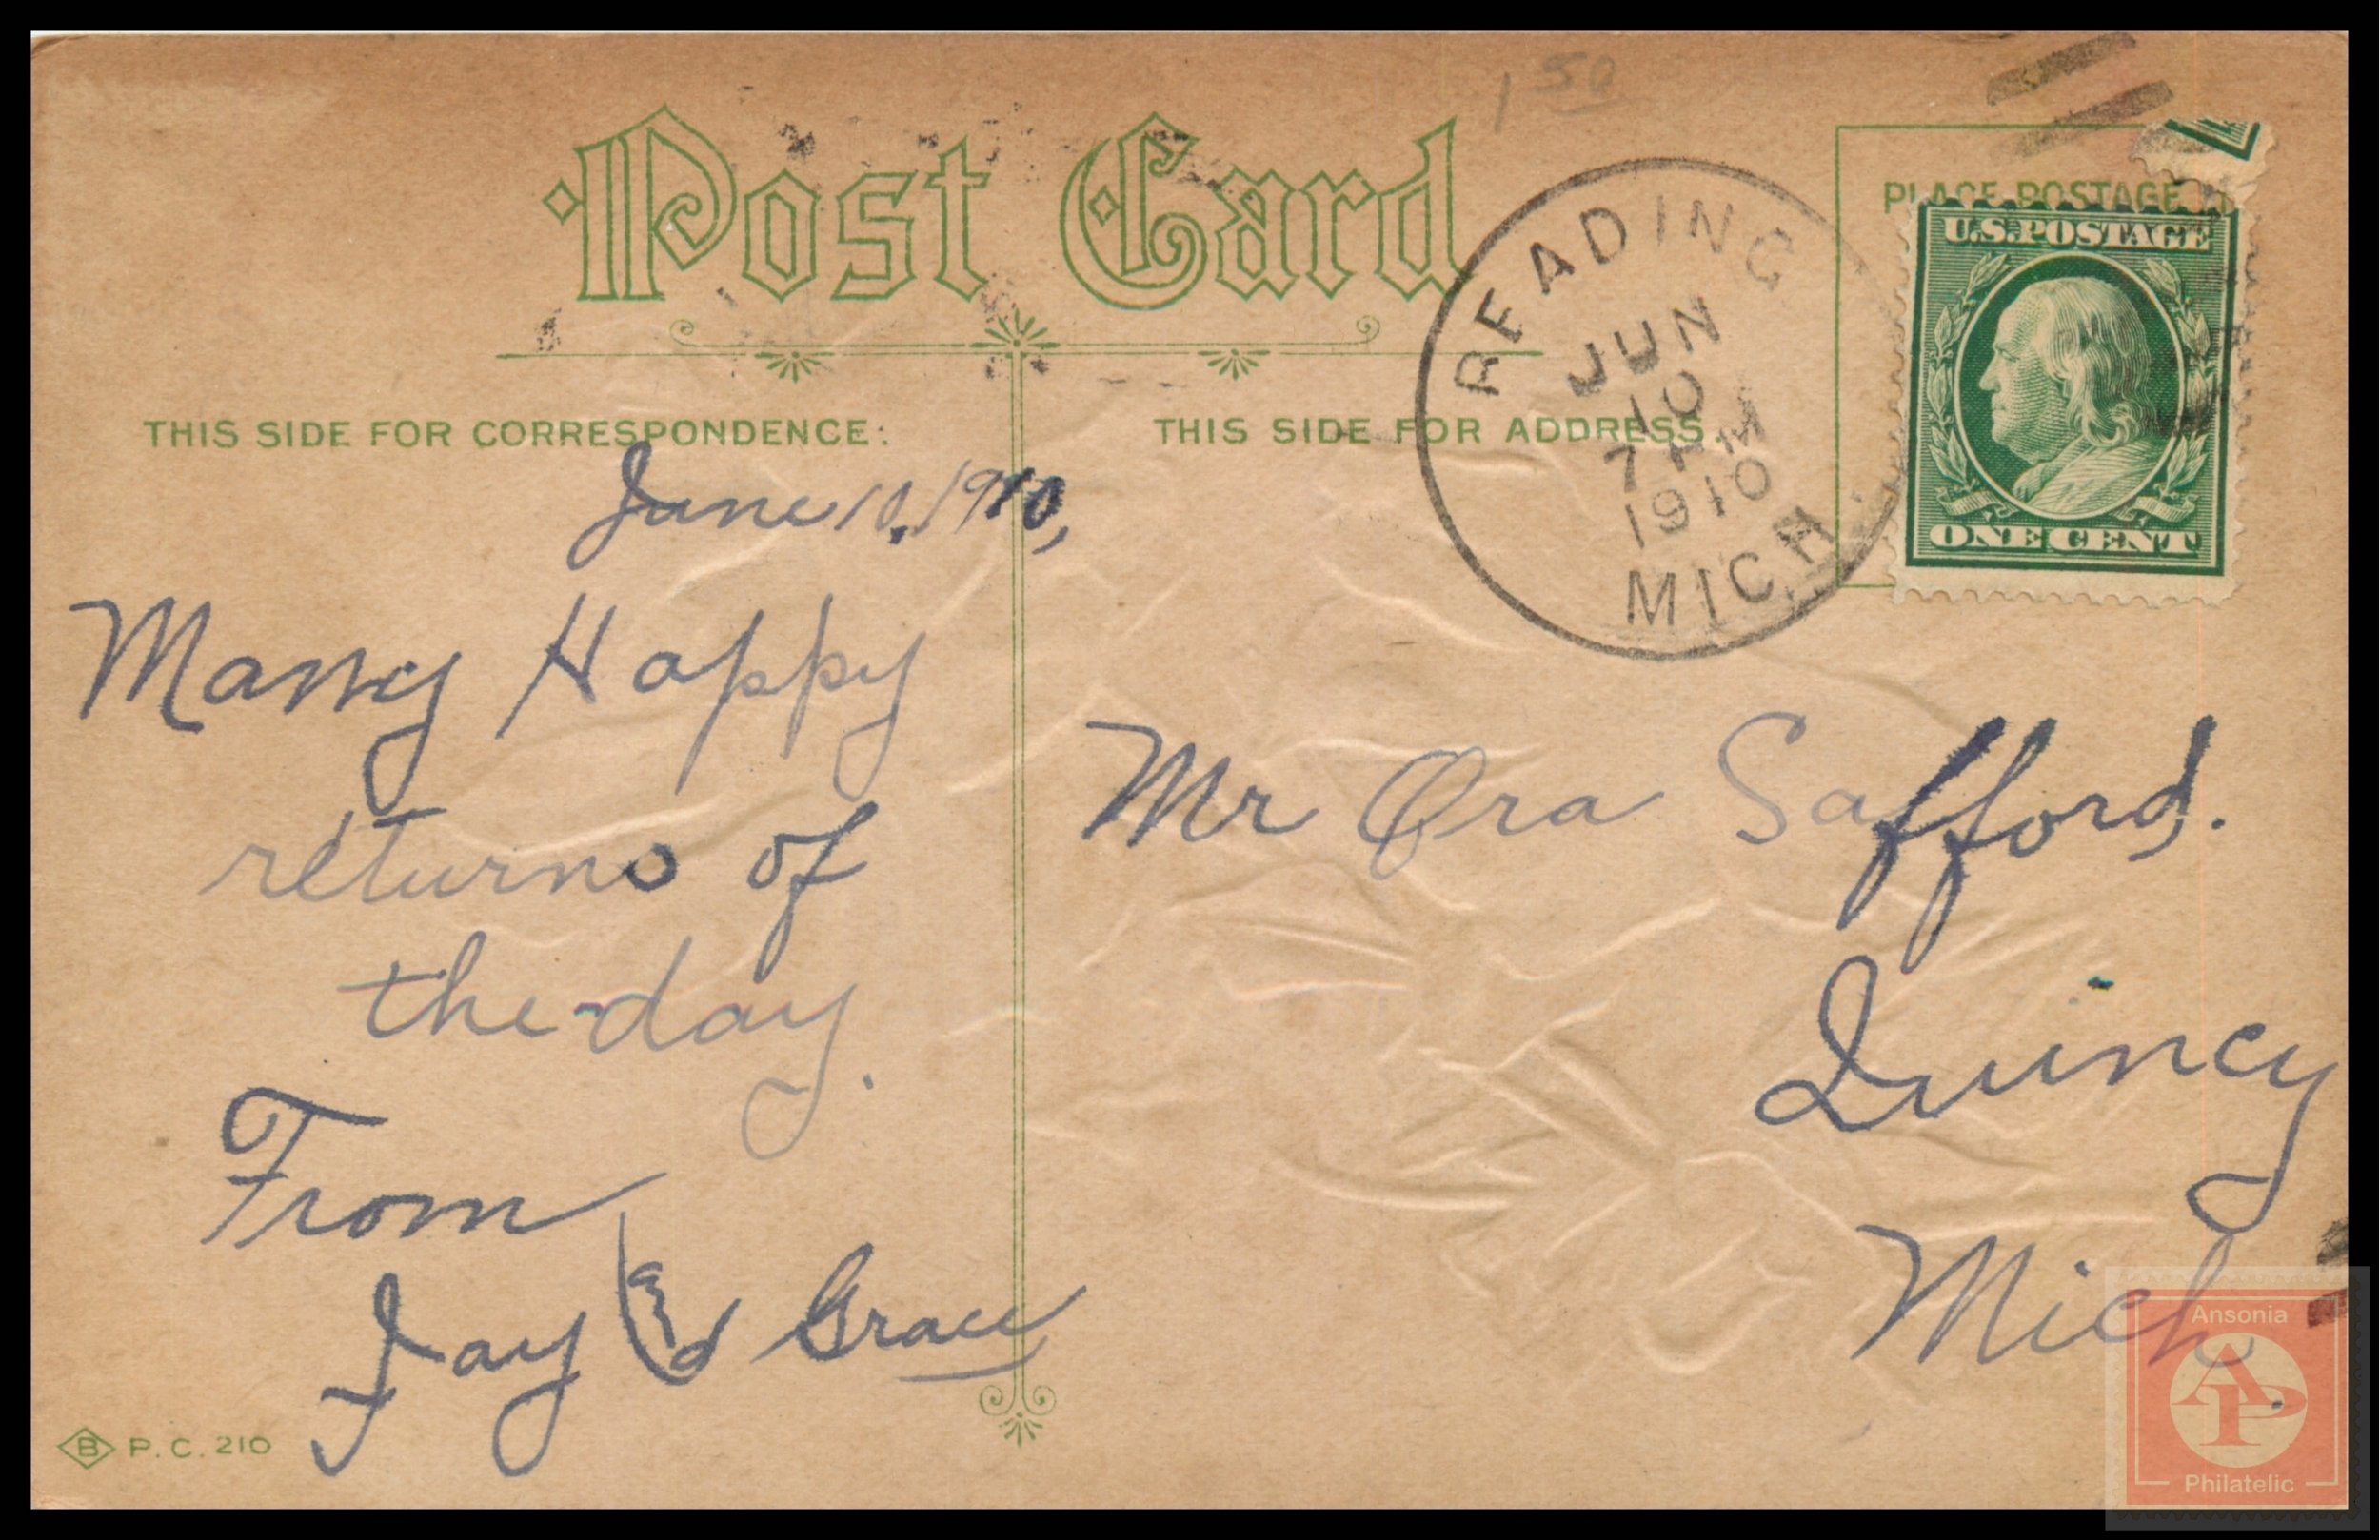 1 50
Post Card
PLACE POSTAGE
U.S. POSTAGE
ONE CENT
READING
JUN
10
7 AM
1910
MICH.
THIS SIDE FOR CORRESPONDENCE:
THIS SIDE FOR ADDRESS.
June 10, 1910,
Many Happy
returns of
the day.
From
Jay & Grace
Mr Ora Safford.
Quincy
Mich.
B P.C. 210
Ansonia
AP
Philatelic